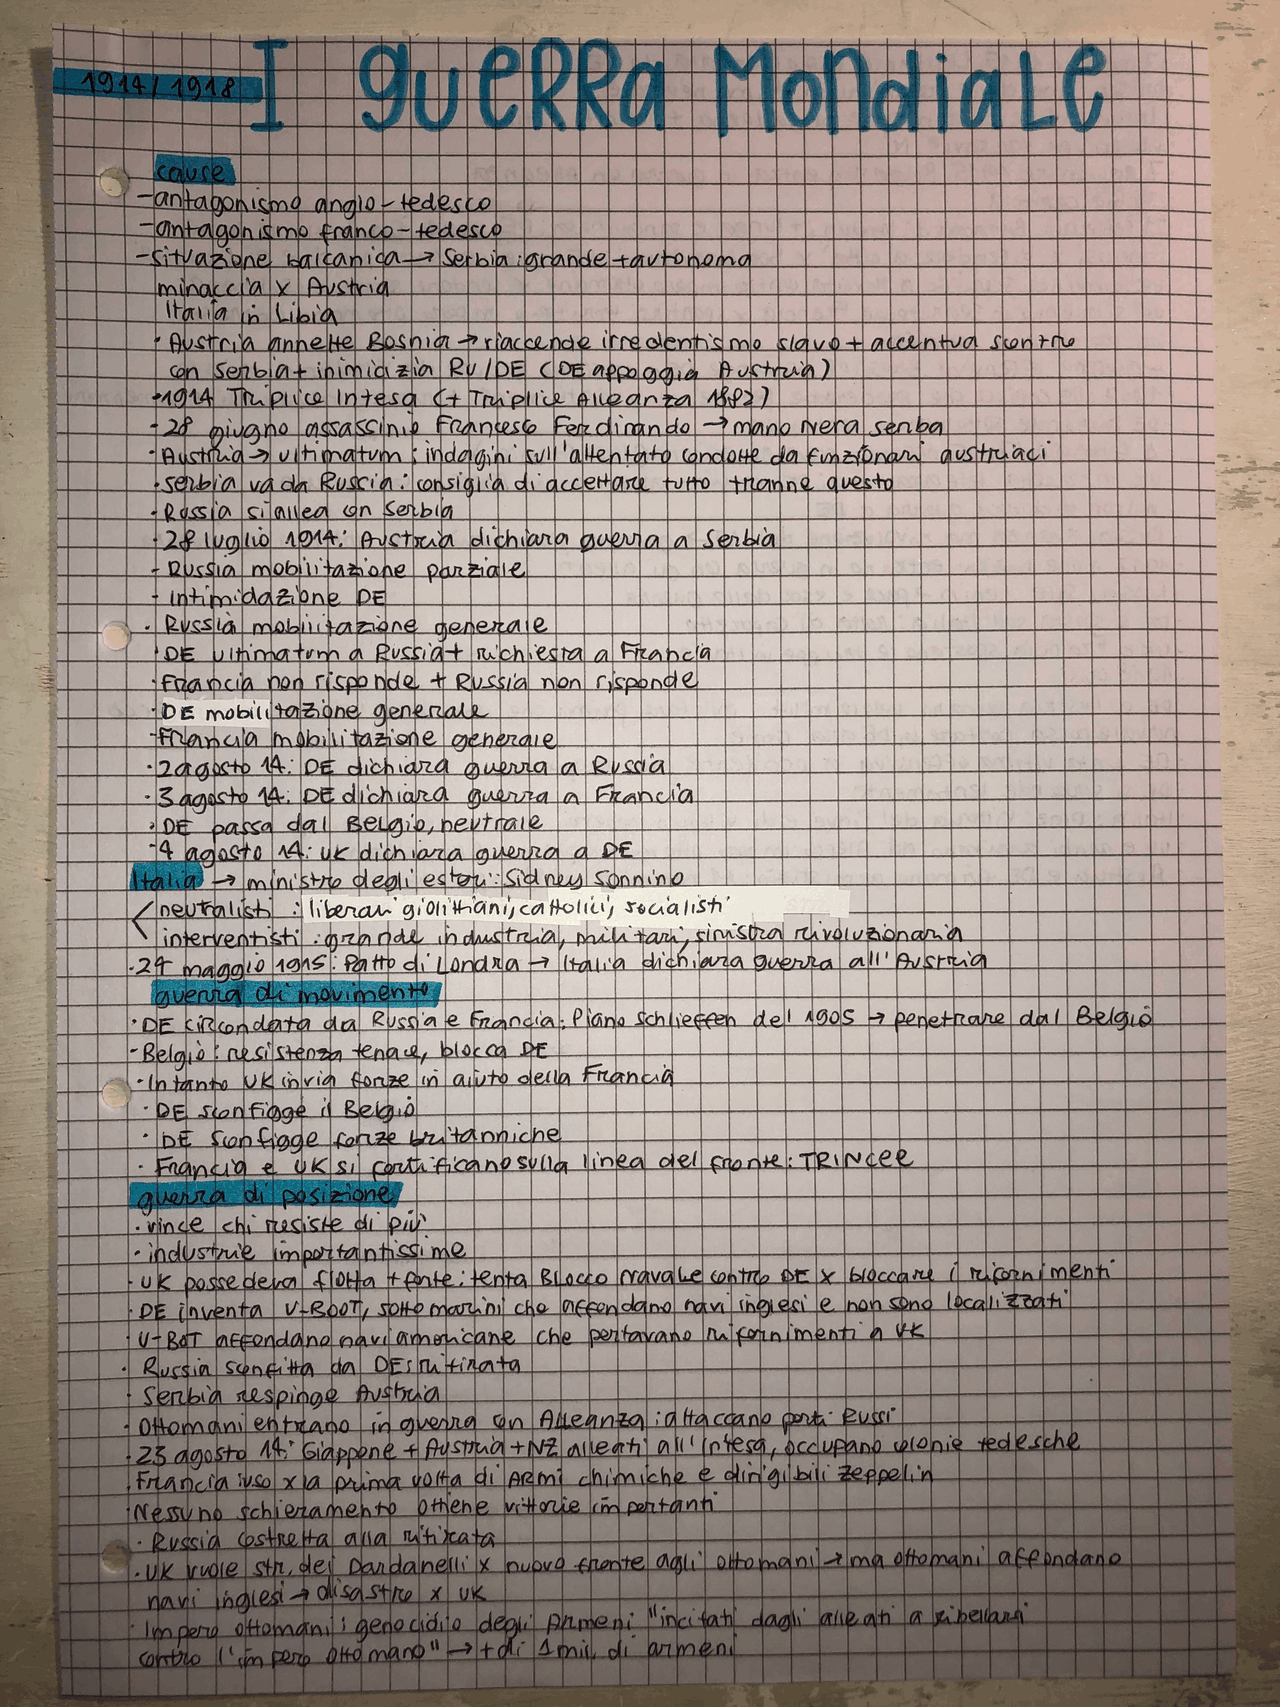 1914/1918
I GUERRA MONDIALE
cause
-antagonismo anglo-tedesco
-antagonismo franco-tedesco
-situazione balcanica→ Serbia:grande+autonoma
minaccia x Austria
Italia in Libia
• Austria annette Bosnia → riaccende irredentismo slavo + accentua scontro
con Serbia+ inimicizia RU/DE (DE appoggia Austria)
•1914 Triplice Intesa (+ Triplice Alleanza 1882)
- 28 giugno assassinio Francesco Ferdinando → mano nera serba
• Austria→ ultimatum : indagini sull'attentato condotte da funzionari austriaci
• serbia va da Russia: consiglia di accettare tutto tranne questo
• Russia si allea con Serbia
• 28 luglio 1914: Austria dichiara guerra a Serbia
- Russia mobilitazione parziale
- intimidazione DE
• Russia mobilitazione generale
• DE ultimatum a Russia+ richiesta a Francia
• Francia non risponde + Russia non risponde
• DE mobilitazione generale
-Francia mobilitazione generale
• 2 agosto 14: DE dichiara guerra a Russia
• 3 agosto 14: DE dichiara guerra a Francia
• DE passa dal Belgio, neutrale
-4 agosto 14: UK dichiara guerra a DE
Italia → ministro degli esteri: Sidney Sonnino
neutralisti : liberari giolittiani, cattolici, socialisti
interventisti : grande industria, militari, sinistra rivoluzionaria
•24 maggio 1915: Patto di Londra → Italia dichiara guerra all'Austria
guerra di movimento
• DE circondata da Russia e Francia: Piano Schlieffen del 1905 → penetrare dal Belgio
-Belgio: resistenza tenace, blocca DE
• Intanto UK invia forze in aiuto della Francia
• DE sconfigge il Belgio
• DE sconfigge forze britanniche
• Francia e UK si fortificano sulla linea del fronte: TRINCEE
guerra di posizione
• vince chi resiste di più
• industrie importantissime
• UK possedeva flotta + forte: tenta Blocco navale contro DE x bloccare i rifornimenti
• DE inventa U-BOOT, sottomarini che affondano navi inglesi e non sono localizzati
• U-BOT affondano navi americane che portavano rifornimenti a UK
• Russia sconfitta da DE: ritirata
• Serbia respinge Austria
• Ottomani entrano in guerra con Alleanza : attaccano porti Russi
• 23 agosto 14: Giappone + Austria + NZ alleati all'Intesa, occupano colonie tedesche
• Francia : uso x la prima volta di ARMI chimiche e dirigibili zeppelin
•Nessuno schieramento ottiene vittorie importanti
• Russia costretta alla ritirata
• UK vuole str. dei Dardanelli x nuovo fronte agli ottomani → ma ottomani affondano
navi inglesi → disastro x UK
• Impero ottomani: genocidio degli Armeni "incitati dagli alleati a ribellarsi
contro l'impero ottomano" → + di 1 mil. di armeni